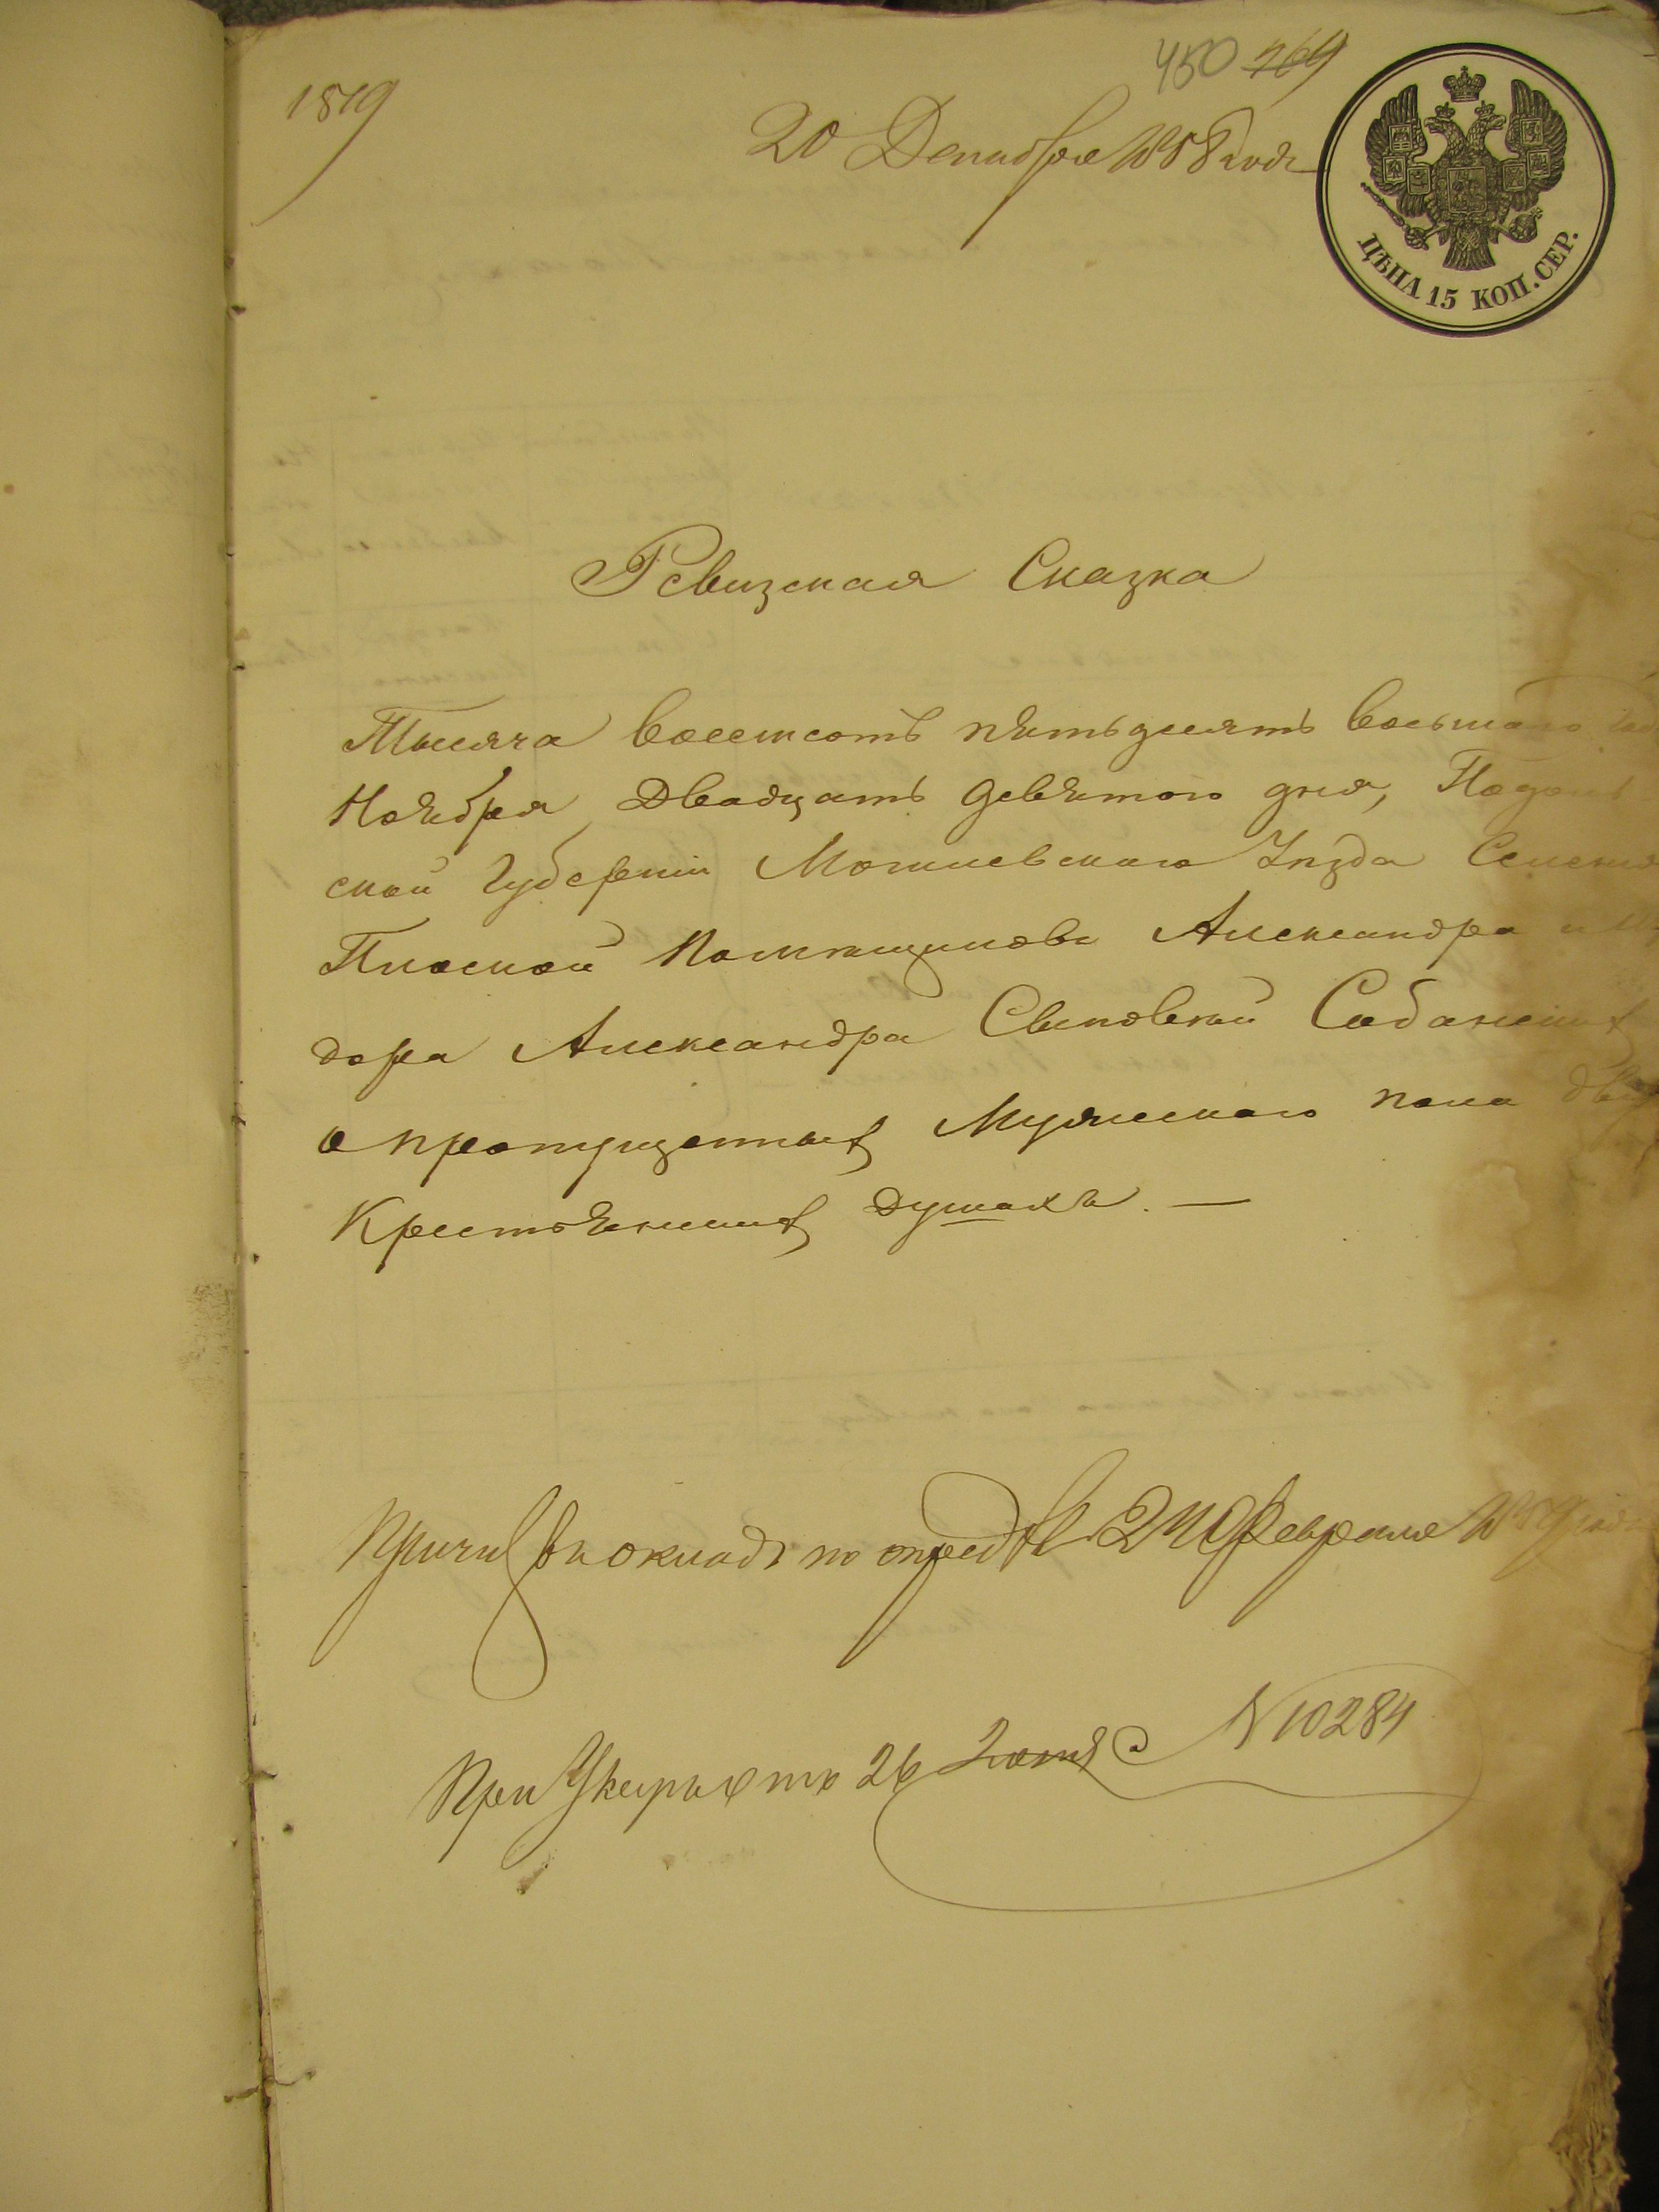 450 264
1819
20 Декабря 1858 года
ЦѢНА 15 КОП. СЕР.
Ревизская Сказка
Тысяча восемсотъ пятьдесятъ восьмаго
Ноября двадцать девятого дня, Подоль
ской Губерніи Могилевского Уѣзда Селенія
Плоской Помѣщиковъ Александра и
дора Александра Сыновей Собанскихъ
о пропущенныхъ Мужескаго пола
Крестьянскихъ душахъ. —
въ окладъ по 24 Февраля 1859 года
При Указѣ 26 N 10284